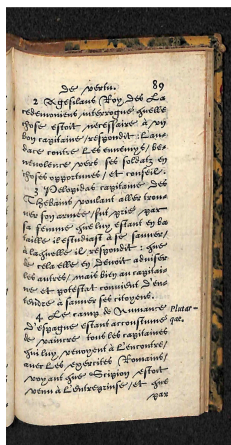 de vertu. 89
2. Agesilaus Roy des La
cedemoniens, interrogue quelle
chose estoit necessaire à vn
bon capitaine / respondit: L'au
dace contre Les ennemys / be
nevolence vers ses soldatz en
choses opportunes / et conseil.
3. Pelopidas capitaine des
Thebains voulant aller trou
ver son armée / fut prié par
sa femme que luy estant en ba
taille il estudiast à se sauver /
à laquelle il respondit: que
de cela elle en devoit adviser
les autres / mais bien au capitai
ne et potestat convient d'en
tendre à sauver ses citoyens.
4. Le camp de Numance Plutar-
d'espagne estant accoustumé que.
de vaincre tous les capitaines
qui luy venoyent à l'encontre /
avec Les exercites Romains /
voyant que Scipion estoit
venu à L'entreprinse / et que
par